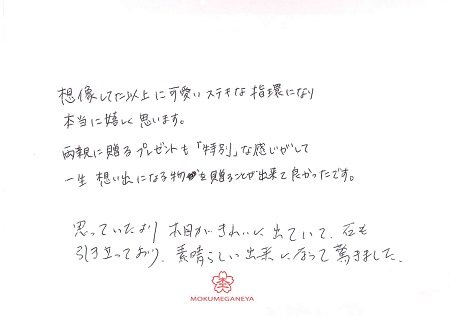 想像してた以上に可愛いステキな指環になり
本当に嬉しく思います。
両親に贈るプレゼントも「特別」な感じがして
一生 想い出になる物を贈ることが出来て良かったです。
思っていたより 木目がきれいに出ていて、石も
引き立っており、素晴らしい出来になって驚きました。
MOKUMEGANEYA